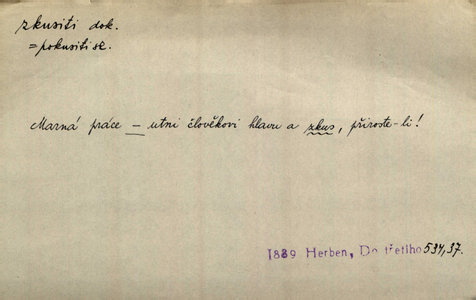 zkusiti dok.
= pokusiti se.
Marná práce — utni člověkovi hlavu a zkus, přiroste-li!
1889 Herben, Do třetího 534,37.